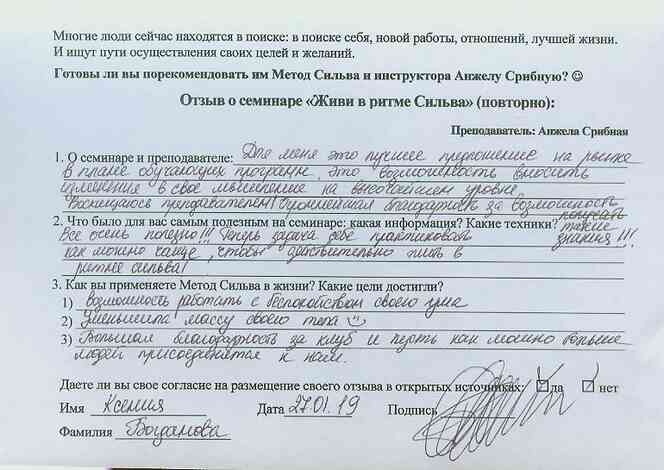 Многие люди сейчас находятся в поиске: в поиске себя, новой работы, отношений, лучшей жизни.
И ищут пути осуществления своих целей и желаний.
Готовы ли вы порекомендовать им Метод Сильва и инструктора Анжелу Срибную? ☺
Отзыв о семинаре «Живи в ритме Сильва» (повторно):
Преподаватель: Анжела Срибная
1. О семинаре и преподавателе: Для меня это лучшее предложение на рынке
в плане обучающих программ. Это возможность вносить
изменения в свое мышление на высочайшем уровне.
Восхищаюсь преподавателем! Огромнейшая благодарность за возможность
получать
2. Что было для вас самым полезным на семинаре: какая информация? Какие техники? такие
Все очень полезно!!! Теперь задача себе практиковать знания!!!
как можно чаще, чтобы действительно жить в
ритме Сильва!
3. Как вы применяете Метод Сильва в жизни? Какие цели достигли?
1) Возможность работать с беспокойством своего ума
2) Уменьшила массу своего тела ☺
3) Большая благодарность за клуб и пусть как можно больше
людей присоединяется к нам.
Даете ли вы свое согласие на размещение своего отзыва в открытых источниках: ☑ да ☑ нет
Имя Ксения Дата 27.01.19 Подпись
Фамилия Богданова